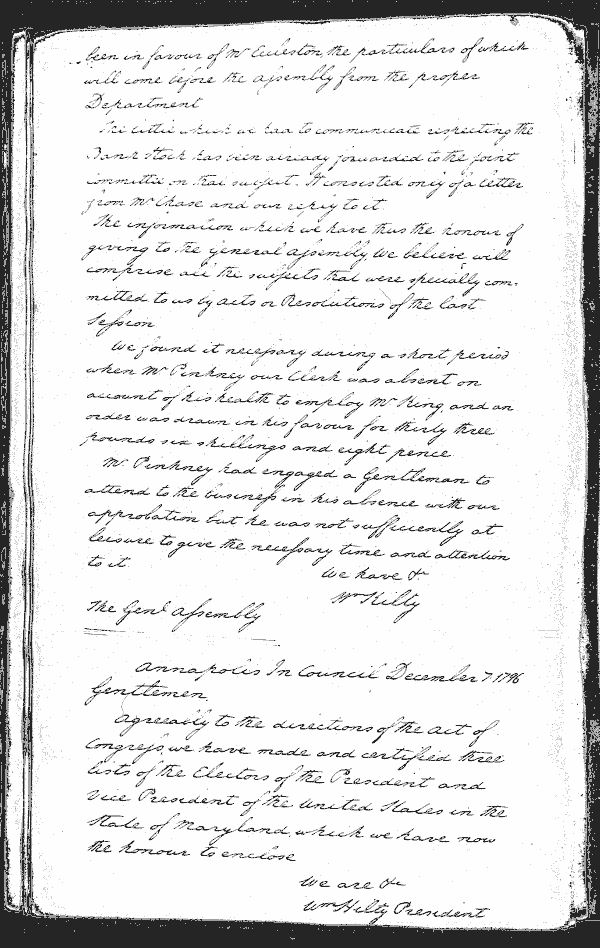 been in favour of Mr Eccleston, the particulars of which
will come before the Assembly from the proper
Department
The little which we had to communicate respecting the
Bank Stock has been already forwarded to the joint
committee on that subject. It consisted only of a letter
from Mr Chase and our reply to it
The information which we have thus the honour of
giving to the General Assembly we believe will
comprise all the subjects that were specially com-
mitted to us by acts or Resolutions of the last
Session
We found it necessary during a short period
when Mr Pinkney our Clerk was absent on
account of his health to employ Mr King, and an
order was drawn in his favour for thirty three
pounds six shillings and eight pence
Mr. Pinkney had engaged a Gentleman to
attend to the business in his absence with our
approbation but he was not sufficiently at
leisure to give the necessary time and attention
to it
We have &c
Wm Kilty
The Genl. Assembly
Annapolis In Council December 7 1796
Gentlemen,
Agreeably to the directions of the Act of
Congress, we have made and certified three
lists of the Electors of the President and
Vice President of the United States in the
State of Maryland, which we have now
the honour to enclose
We are &c
Wm Kilty President